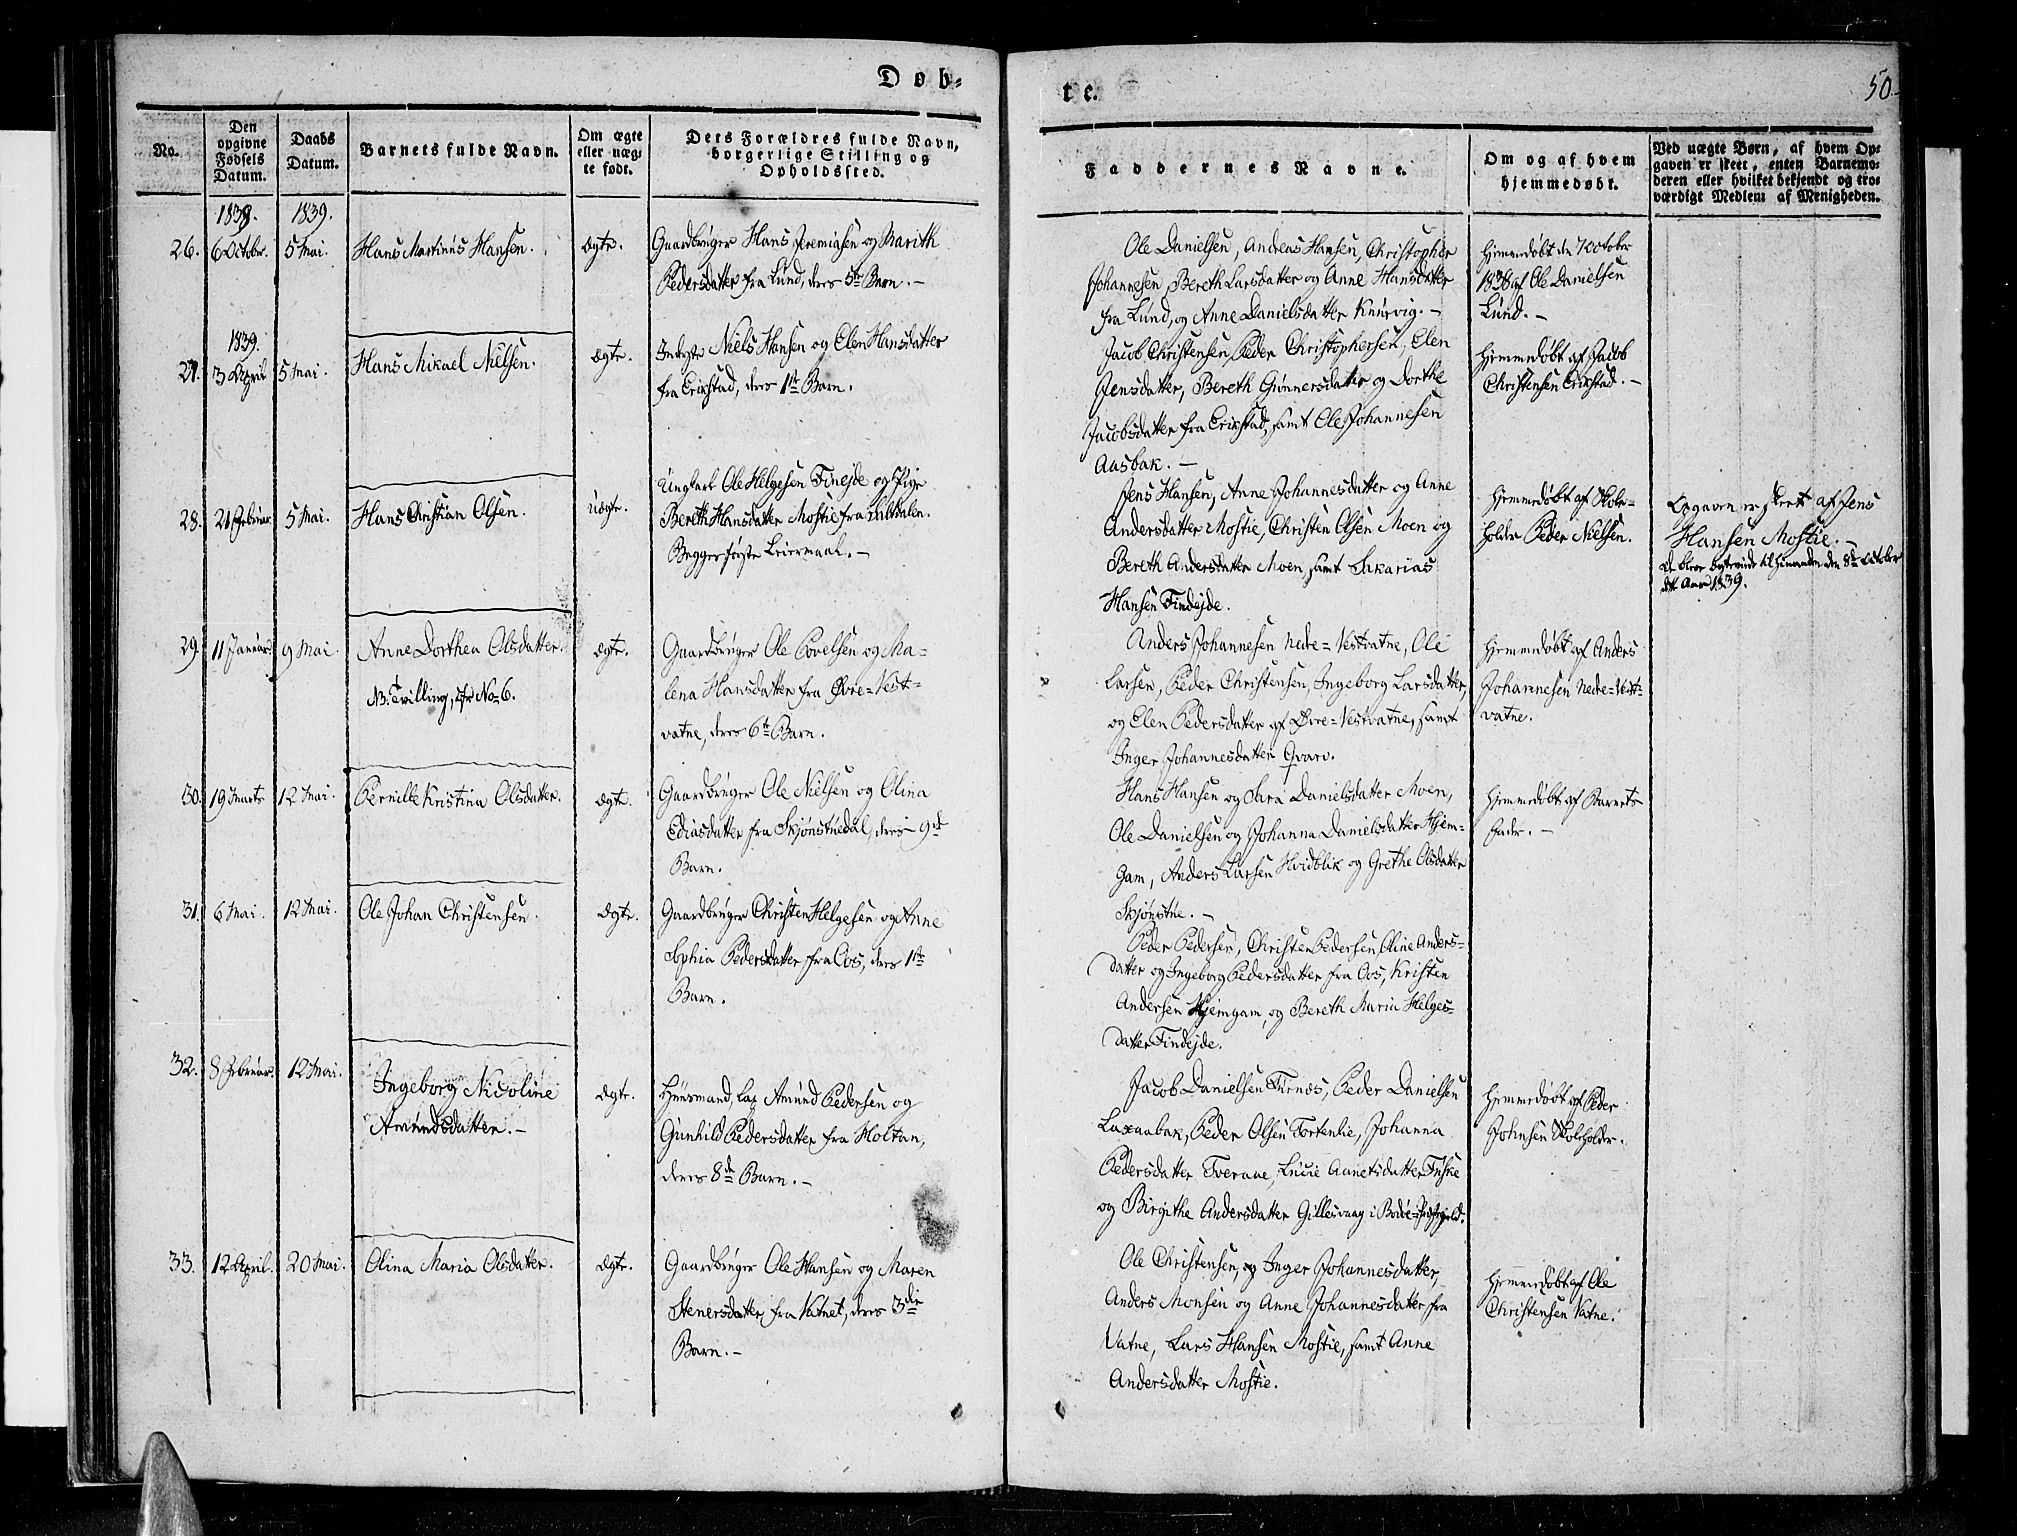 Døb-
te.
50
No.
Den opgivne Fødsels Datum.
Daabs Datum.
Barnets fulde Navn.
Om ægte eller uæg- te født.
Dets Forældres fulde Navn,
borgerlige Stilling og
Opholdssted.
Faddernes Navne.
Om og af hvem
hjemmedøbt.
Ved uægte Børn, af hvem Op-
gaven er skeet, enten Barnemo-
deren eller hvilket bekjendt og tro-
værdigt Medlem af Menigheden.
1838. 1839.
26. 6 October. 5 Mai. Hans Martinus Hansen. Ægte.
Gaardbruger Hans Jeremiasen og Marith
Pedersdatter fra Lund, deres 5te Barn. -
Ole Danielsen, Andreas Hansen, Christopher
Johannesen, Bereth Larsdatter og Anne Hansdatter
fra Lund, og Anne Danielsdatter Knurvig. -
Hjemmedøbt den 7 October
1838 af Ole Danielsen
Lund. -
1839.
27. 3 April 5 Mai. Hans Mikael Nielsen. Ægte.
Inderste Niels Hansen og Elen Hansdatter
fra Erikstad, deres 1ste Barn.
Jacob Christensen, Peder Christophersen, Elen
Jensdatter, Bereth Gunnersdatter og Dorthe
Jacobsdatter fra Erikstad, samt Ole Johannesen
Aasbak. -
Hjemmedøbt af Jacob
Christensen Erikstad. -
28. 21 Februar 5 Mai. Hans Christian Olsen. Uægte.
Ungkarl Ole Helgesen Finejde og Pige
Bereth Hansdatter Mostie fra
Begges første Leiermaal. -
Jens Hansen, Anne Johannesdatter og Anne
Andersdatter Mostie, Christen Olsen Moen og
Bereth Andersdatter Moen, samt Sakarias
Hansen Findejde.
Hjemmedøbt af Skole-
holder Peder Nielsen.
Opgaven er skeet af Jens
Hansen Mostie. -
De blev ægteviede til hinanden den 8de October
dette Aar 1839.
29. 11 Januar 9 Mai. Anne Dorthea Olsdatter. Ægte.
NB. Tvilling, cfr No 6.
Gaardbruger Ole Povelsen og Ma-
lena Hansdatter fra Øvre-Vest-
vatne, deres 6te Barn.
Anders Johannesen Nedre-Vestvatne, Ole
Larsen, Peder Christensen, Ingeborg Larsdatter,
og Elen Pedersdatter af Øvre-Vestvatne, samt
Inger Johannesdatter Qvarv.
Hjemmedøbt af Anders
Johannesen Nedre-Vest-
vatne.
30. 19 Marts 12 Mai. Pernille Kristina Olsdatter. Ægte.
Gaardbruger Ole Nielsen og Olina
Ediasdatter fra Skjønstuedal, deres 9de
Barn.
Hans Hansen og Sara Danielsdatter Moen,
Ole Danielsen og Johanna Danielsdatter Hjem-
gam, Anders Larsen Hvidblik og Grethe Olsdatter
Skjønstue. -
Hjemmedøbt af Barnets
Fader. -
31. 6 Mai. 12 Mai. Ole Johan Christensen. Ægte.
Gaardbruger Christen Helgesen og Anne
Sophia Pedersdatter fra Oos, deres 1ste
Barn.
Peder Pedersen, Christen Pedersen, Oline Anders-
datter og Ingeborg Pedersdatter fra Oos, Kristen
Andersen Hjemgam, og Bereth Maria Helges-
datter Findejde.
32. 8 Februar. 12 Mai. Ingeborg Nicoline Ægte.
Amundsdatter. -
Huusmand, Lap Amund Pedersen og
Gunhild Pedersdatter fra Holtan,
deres 8de Barn. -
Jacob Danielsen Furnæs, Peder Danielsen
Laxaabak, Peder Olsen Tortenlie, Johanna
Pedersdatter Tveraae, Lucie Aanetsdatter Fuske
og Birgithe Andersdatter Gillesvaag i Bodøe-Præstegjeld.
Hjemmedøbt af Peder
Johnsen Skoleholder.
33. 12 April. 20 Mai. Olina Maria Olsdatter. Ægte.
Gaardbruger Ole Hansen og Maren
Stenersdatter fra Vatnet, deres 3die
Barn. -
Ole Christensen, og Inger Johannesdatter,
Anders Monsen og Anne Johannesdatter fra
Vatne, Lars Hansen Mostie, samt Anne
Andersdatter Mostie.
Hjemmedøbt af Ole
Christensen Vatne.